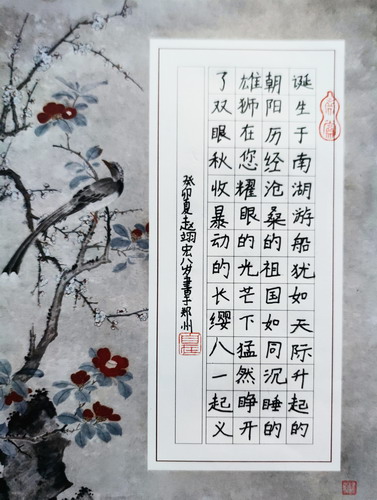 诞生于南湖游船犹如天际升起的
朝阳历经沧桑的祖国如同沉睡的
雄狮在您耀眼的光芒下猛然睁开
了双眼秋收暴动的长缨八一起义
癸卯夏赵翊宏八岁书于郑州